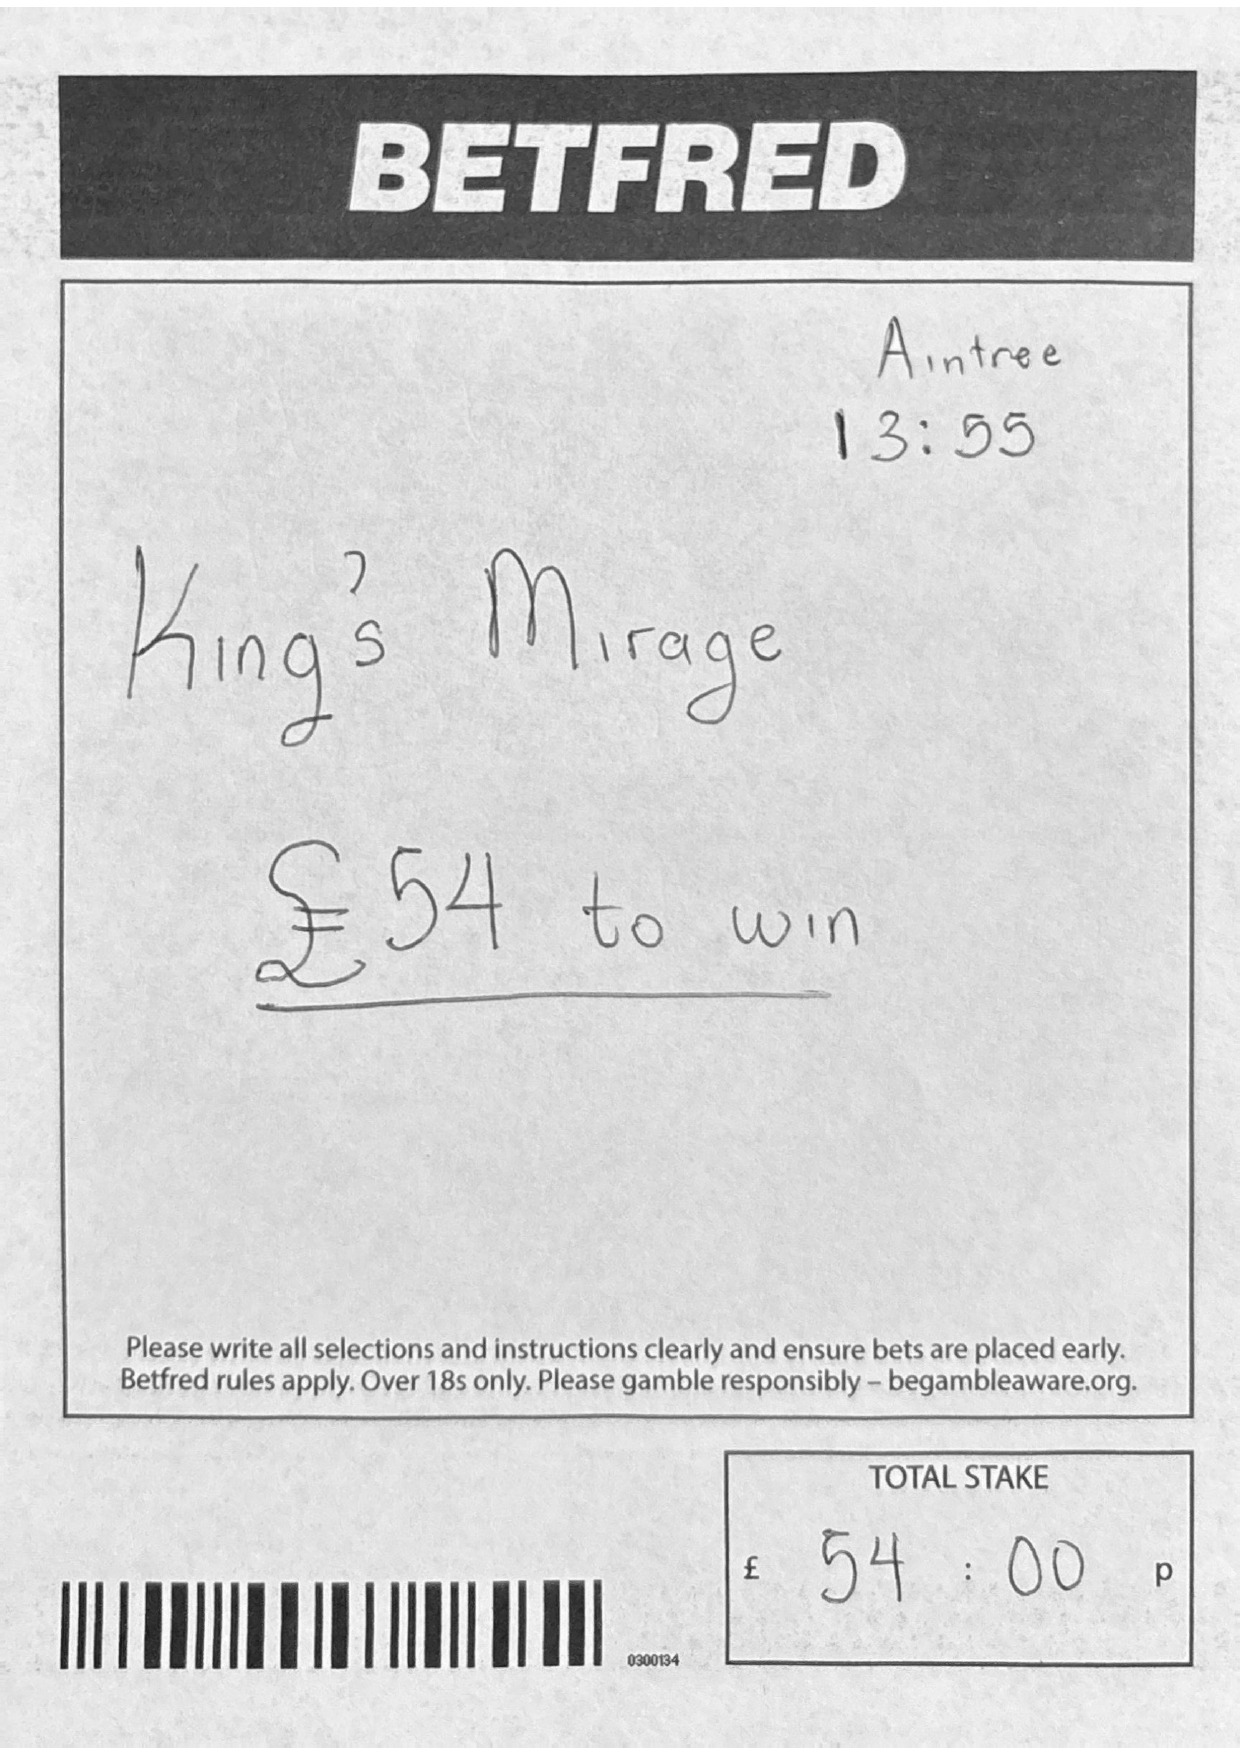 BETFRED
Aintree
13:55
King's Mirage
£54 to win
Please write all selections and instructions clearly and ensure bets are placed early.
Betfred rules apply. Over 18s only. Please gamble responsibly – begambleaware.org.
TOTAL STAKE
£ 54 : 00 p
0300134